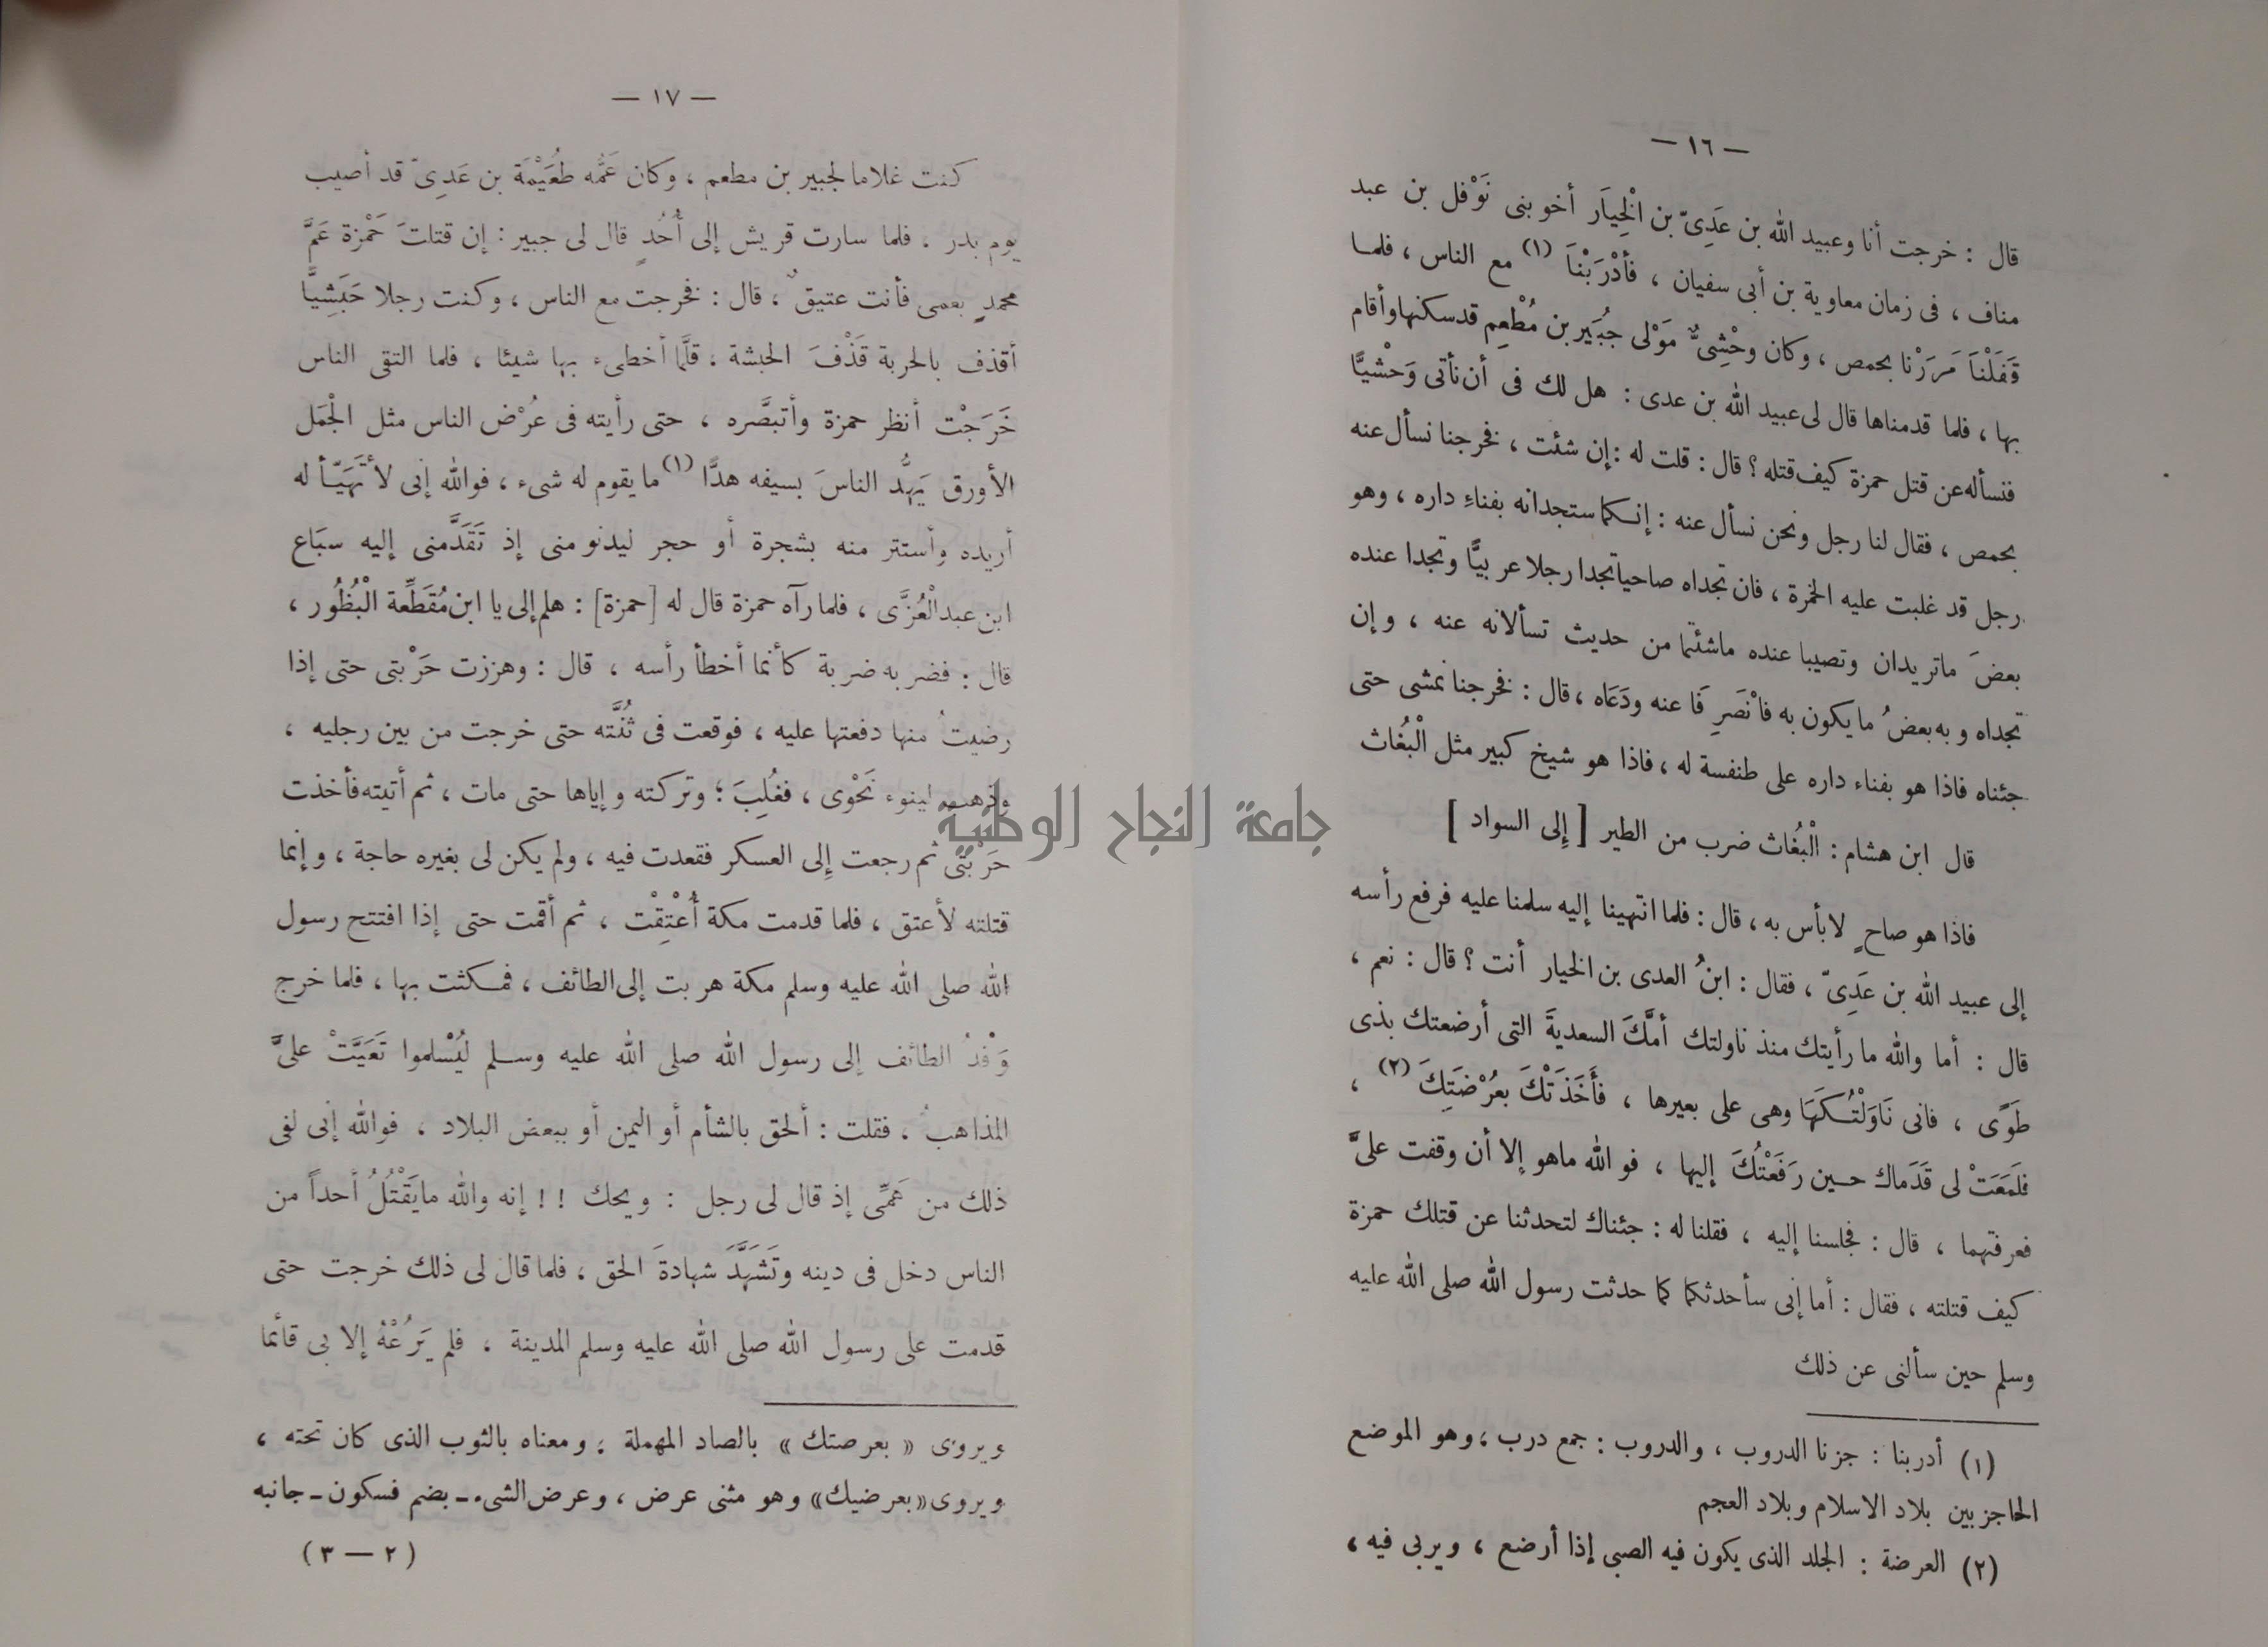 — ١٦ —
قال : خرجت أنا وعبيد الله بن عَدِىّ بن الْخِيَار أخو بنى نَوْفل بن عبد
مناف ، فى زمان معاوية بن أبى سفيان ، فأدْرَبْنَا (١) مع الناس ، فلمـا
قَفَلْنَا مَرَرْنا بحمص ، وكان وحْشِىٌّ مَوْلى جُبَير بن مُطْعِم قد سكنها وأقام
بها ، فلما قدمناها قال لى عبيد الله بن عدى : هل لك فى أن نأتى وَحْشيًّا
فنسأله عن قتل حمزة كيف قتله ؟ قال : قلت له : إن شئت ، فخرجنا نسأل عنه
بحمص ، فقال لنا رجل ونحن نسأل عنه : إنـكما ستجدانه بفناءِ داره ، وهو
رجل قد غلبت عليه الخمرة ، فان تجداه صاحيا تجدا رجلا عربيًّا وتجدا عنده
بعضَ ماتريدان وتصيبا عنده ماشئتما من حديث تسألانه عنه ، وإن
تجداه وبه بعضُ مايكون به فانْصَرِفَا عنه ودَعَاه ، قال : فخرجنا نمشى حتى
جئناه فاذا هو بفناء داره على طنفسة له ، فاذا هو شيخ كبير مثل الْبُغَاث
قال ابن هشام : الْبُغَاث ضرب من الطير [ إلى السواد ]
فاذا هو صاحٍ لا بأس به ، قال : فلما انتهينا إليه سلمنا عليه فرفع رأسه
إلى عبيد الله بن عَدِىّ ، فقال : ابنُ العدى بن الخيار أنت ؟ قال : نعم ،
قال : أما والله ما رأيتك منذ ناولتك أمَّكَ السعديةَ التى أرضعتك بذى
طَوًى ، فانى نَاوَلْتُـكَهَا وهى على بعيرها ، فأَخَذَتْكَ بعُرْضَتِكَ (٢) ،
فلَمَعَتْ لى قَدَماك حـين رَفَعْتُكَ إليها ، فو الله ماهو إلا أن وقفت علىَّ
فعرفتهما ، قال : فجلسنا إليه ، فقلنا له : جئناك لتحدثنا عن قتلك حمزة
كيف قتلته ، فقال : أما إنى سأحدثكما كما حدثت رسول الله صلى الله عليه
وسلم حين سألنى عن ذلك
(١) أدربنا : جزنا الدروب ، والدروب : جمع درب ؛ وهو الموضع
الحاجز بين بلاد الاسلام وبلاد العجم
(٢) العرضة : الجلد الذى يكون فيه الصبى إذا أرضع ، ويربى فيه ،
— ١٧ —
كنت غلاما لجبير بن مطعم ، وكان عَمُّه طُعَيْمَة بن عَدِىّ قد أصيب
يوم بدر ، فلما سارت قريش إلى أُحُدٍ قال لى جبير : إن قتلتَ حَمْزة عَمَّ
محمدٍ بعمى فأنت عتيقٌ ، قال : فخرجت مع الناس ، وكنت رجلا حَبَشِيًّا
أقذف بالحربة قَذْفَ الحبشة ، قلَّما أخطىء بها شيئا ، فلما التقى الناس
خَرَجْت أنظر حمزة وأتبصَّره ، حتى رأيته فى عُرْض الناس مثل الْجَمَل
الأورق يَهِدُّ الناسَ بسيفه هدًّا (١) مايقوم له شىء ، فوالله إنى لأَتَهَيّأ له
أريده وأستتر منه بشجرة أو حجر ليدنو منى إذ تَقَدَّمنى إليه سبَاع
ابن عبد الْعُزَّى ، فلما رآه حمزة قال له [حمزة] : هلم إلى يا ابن مُقَطِّعة الْبُظُور ،
قال : فضربه ضربة كأنما أخطأ رأسه ، قال : وهززت حَرْبتى حتى إذا
رضيتُ منها دفعتها عليه ، فوقعت فى ثُنَّته حتى خرجت من بين رجليه ،
وذهب لينوء نَحْوى ، فغُلِبَ ؛ وتركته وإياها حتى مات ، ثم أتيته فأخذت
حَرْبَتى ثم رجعت إلى العسكر فقعدت فيه ، ولم يكن لى بغيره حاجة ، وإنما
قتلته لأعتق ، فلما قدمت مكة أُعْتِقْت ، ثم أقمت حتى إذا افتتح رسول
الله صلى الله عليه وسلم مكة هربت إلى الطائف ، فمكثت بها ، فلما خرج
وَفْدُ الطائف إلى رسول الله صلى الله عليه وسـلم ليُسْلموا تَعَيَّتْ علىَّ
المذاهبُ ، فقلت : ألحق بالشأم أو اليمن أو ببعض البلاد ، فوالله إنى لفى
ذلك من هَمِّى إذ قال لى رجل : ويحك !! إنه والله مايَقْتُلُ أحداً من
الناس دخل فى دينه وتَشَهَّدَ شهادةَ الحق ، فلما قال لى ذلك خرجت حتى
قدمت على رسول الله صلى الله عليه وسلم المدينة ، فلم يَرُعْهُ إلا بى قائما
ويروى « بعرصتك » بالصاد المهملة ؛ ومعناه بالثوب الذى كان تحته ،
ويروى «بعرضيك» وهو مثنى عرض ، وعرض الشىء ـ بضم فسكون ـ جانبه
(٢ — ٣)
جامعة النجاح الوطنية